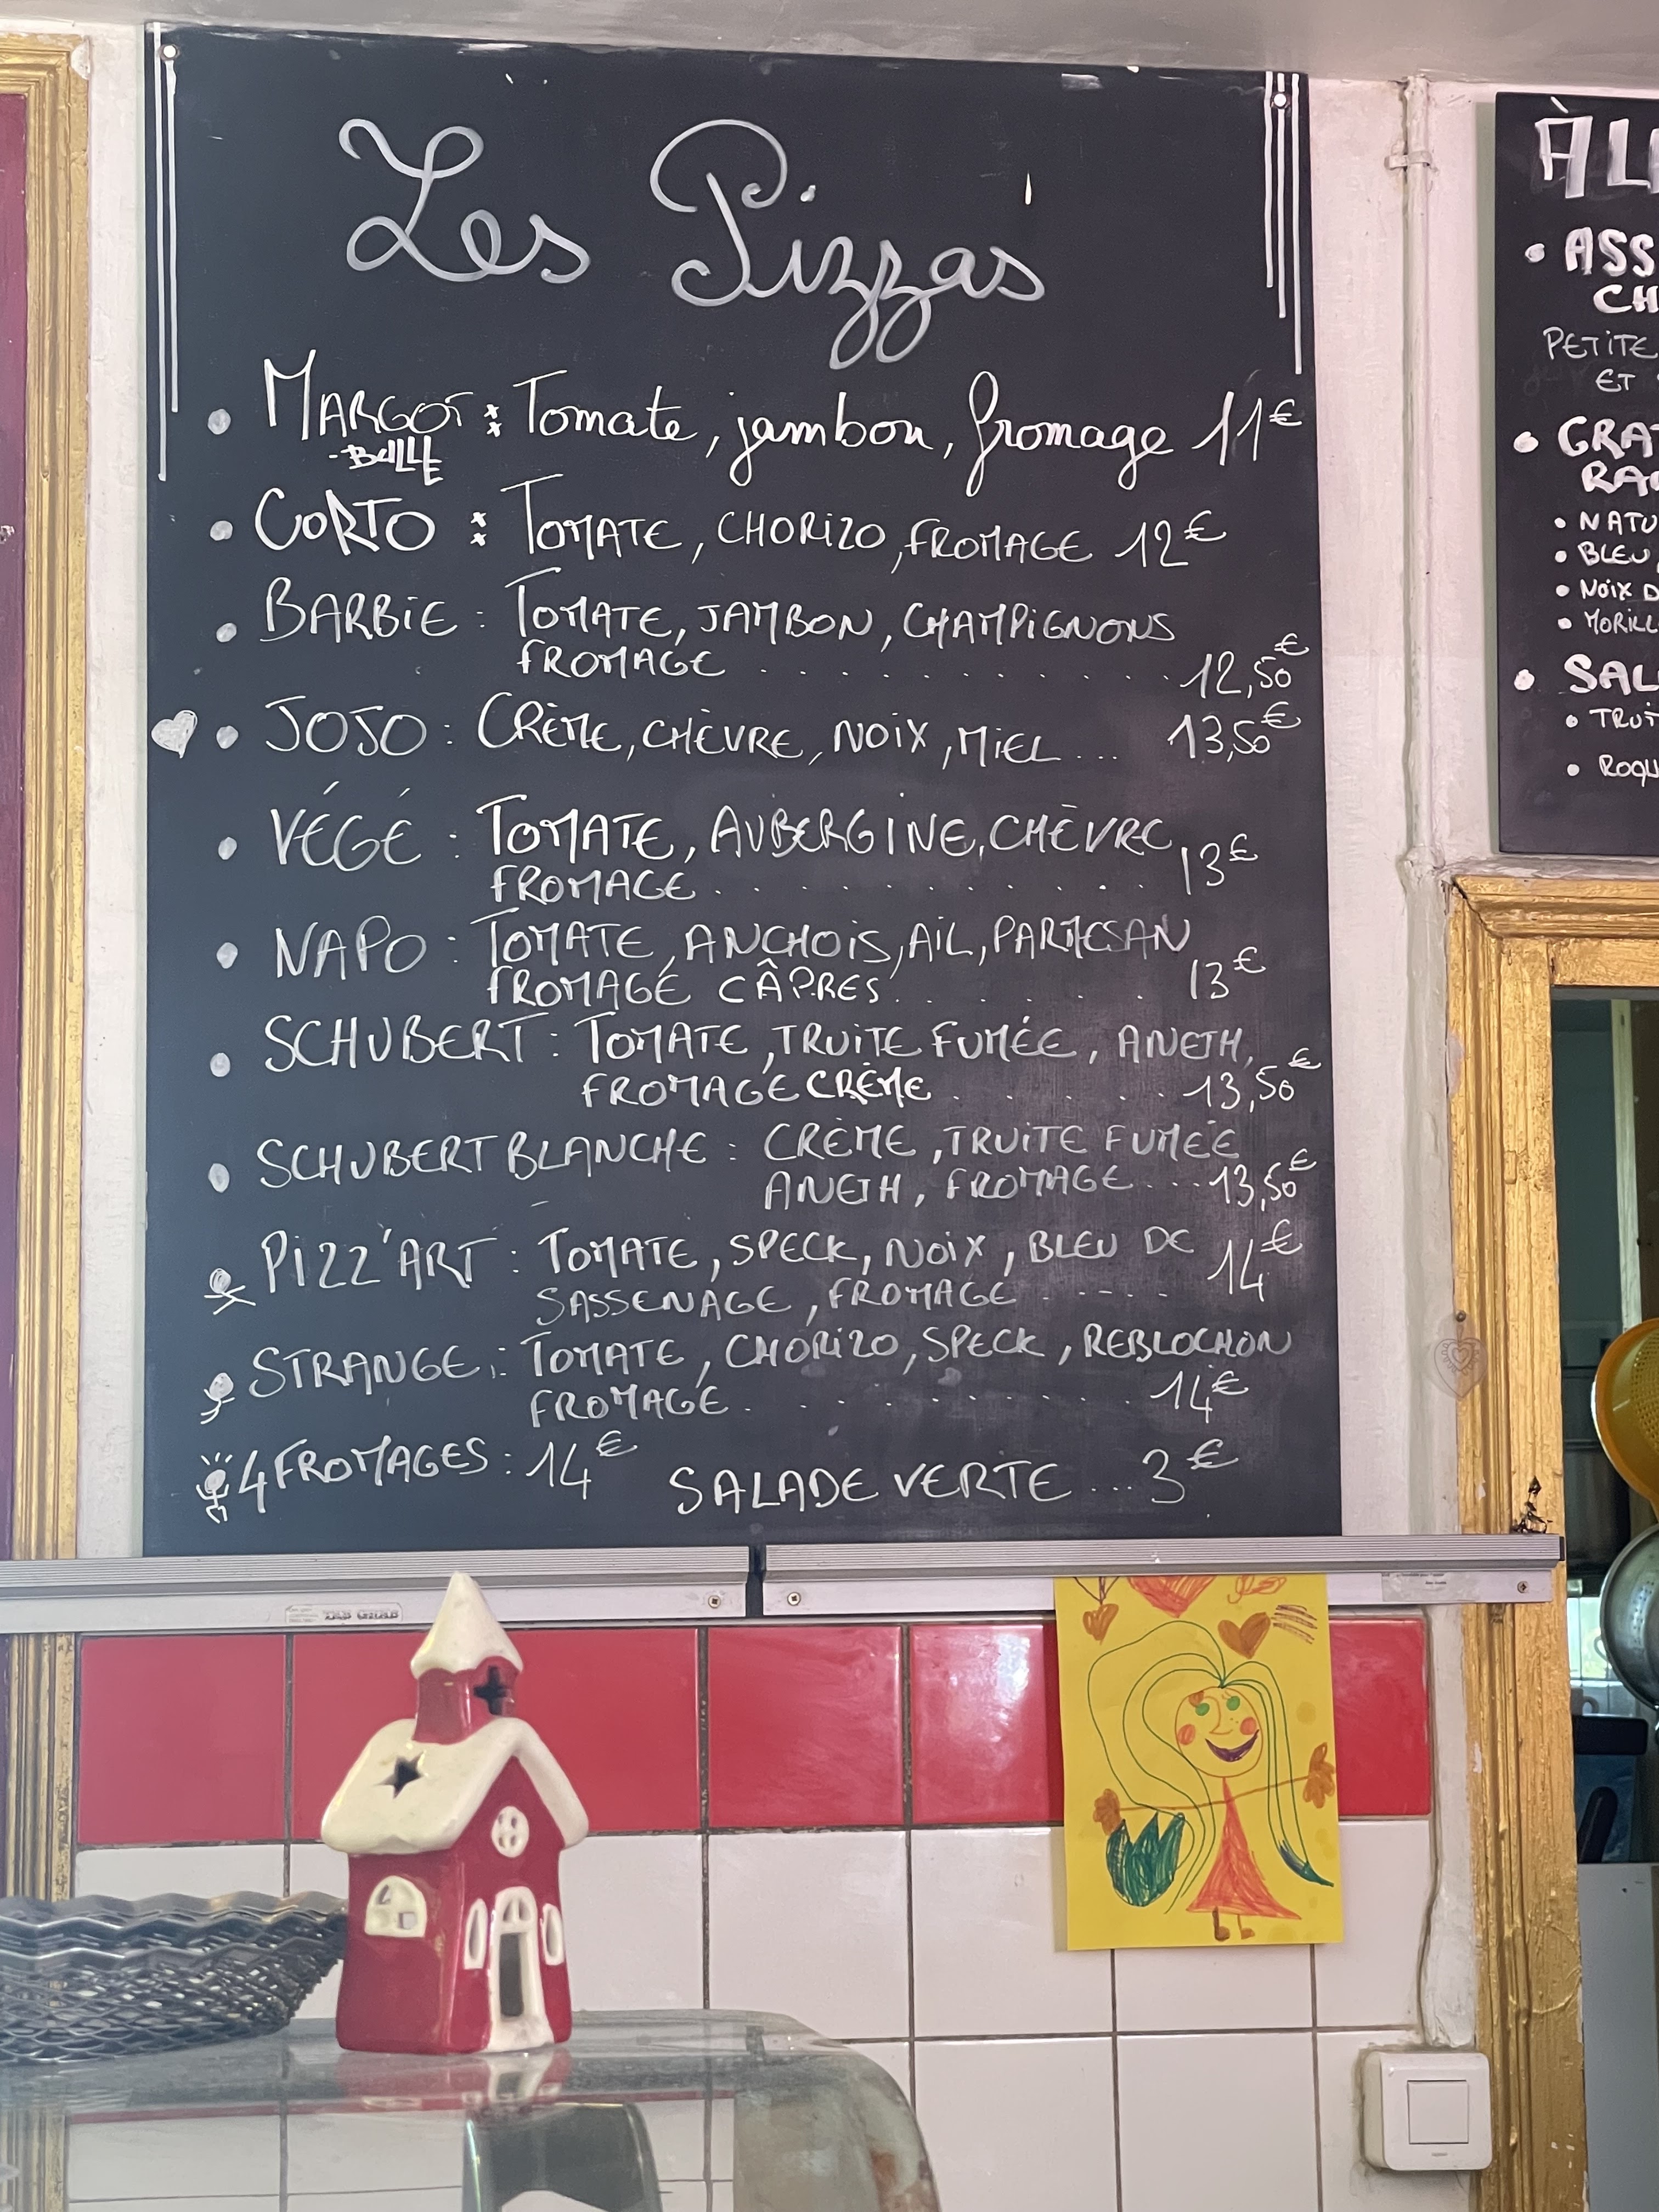 Les Pizzas
• MARGOT : Tomate, jambon, fromage 11€
-BULLE
• CORTO : TOMATE, CHORIZO, FROMAGE 12€
• BARBIE : TOMATE, JAMBON, CHAMPIGNONS
FROMAGE . . . . . . . . . . . 12,50€
• JOJO : CRÈME, CHÈVRE, NOIX, MIEL ... 13,50€
• VÉGÉ : TOMATE, AUBERGINE, CHÈVRE
FROMAGE . . . . . . . . . . 13€
• NAPO : TOMATE, ANCHOIS, AIL, PARMESAN
FROMAGE CÂPRES . . . . . 13€
• SCHUBERT : TOMATE, TRUITE FUMÉE, ANETH,
FROMAGE CRÈME . . . . . . 13,50€
• SCHUBERT BLANCHE : CRÈME, TRUITE FUMÉE
ANETH, FROMAGE ... 13,50€
PIZZ'ART : TOMATE, SPECK, NOIX, BLEU DE
SASSENAGE, FROMAGE ..... 14€
STRANGE : TOMATE, CHORIZO, SPECK, REBLOCHON
FROMAGE . . . . . . . . . 14€
4 FROMAGES : 14€ SALADE VERTE ... 3€
À L
• ASS
CH
PETITE
ET
• GRAT
RA
• NATU
• BLEU
• NOIX D
• MORILL
• SAL
• TRUIT
• ROQU
TAB GRAB